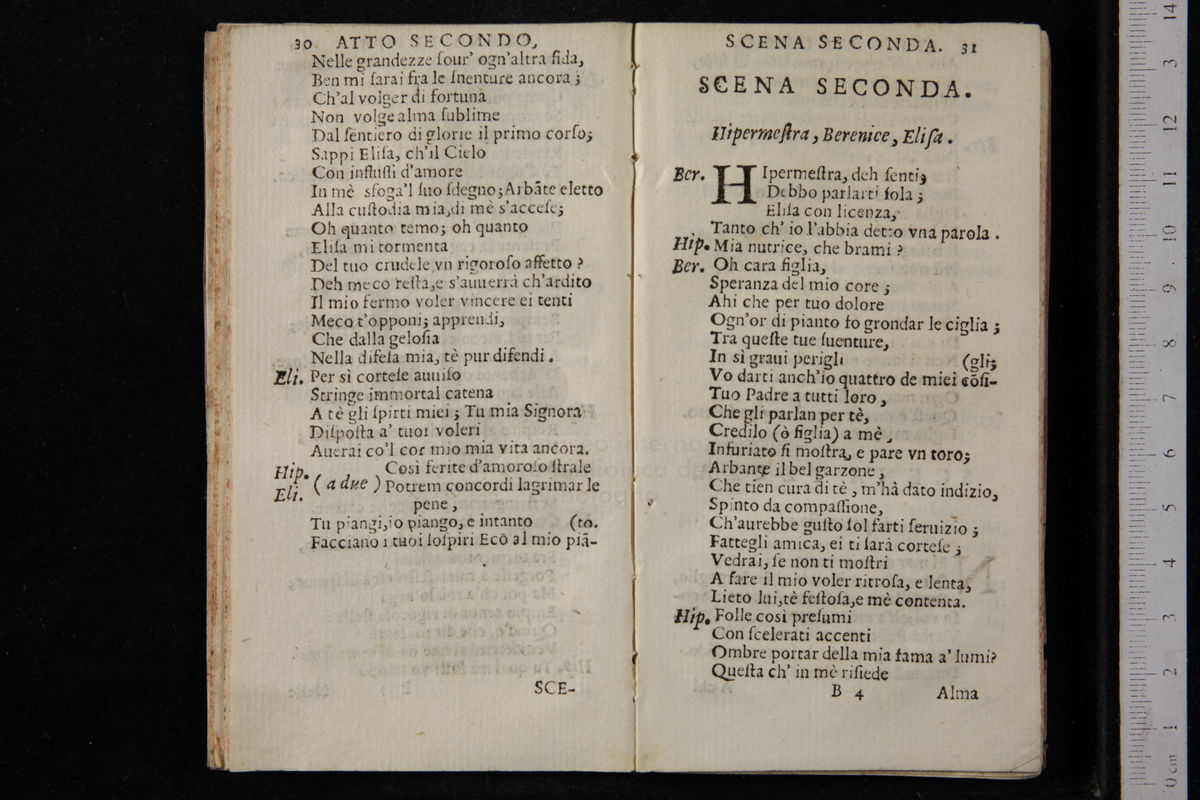 30 ATTO SECONDO,
Nelle grandezze ſour' ogn'altra fida,
Ben mi ſarai fra le ſuenture ancora ;
Ch'al volger di fortuna
Non volge alma ſublime
Dal ſentiero di glorie il primo corſo;
Sappi Eliſa, ch'il Cielo
Con influſſi d'amore
In mè sfoga'l ſuo ſdegno; Arbãte eletto
Alla cuſtodia mia,di mè s'acceſe;
Oh quanto temo; oh quanto
Eliſa mi tormenta
Del tuo crudele vn rigoroſo affetto ?
Deh meco reſta,e s'auuerrà ch'ardito
Il mio fermo voler vincere ei tenti
Meco t'opponi; apprendi,
Che dalla geloſia
Nella difeſa mia, tè pur difendi.
Eli. Per sì corteſe auuiſo
Stringe immortal catena
A tè gli ſpirti miei ; Tu mia Signora
Diſpoſta a' tuoi voleri
Auerai co'l cor mio mia vita ancora.
Hip. Eli. (a due) Così ferite d'amoroſo ſtrale
Potrem concordi lagrimar le
pene,
Tu piangi,io piango, e intanto (to.
Facciano i tuoi ſoſpiri Eco al mio piã-
SCE-
SCENA SECONDA. 31
SCENA SECONDA.
Hipermeſtra, Berenice, Eliſa.
Ber. HIpermeſtra, deh ſenti;
Debbo parlarti ſola ;
Eliſa con licenza,
Tanto ch' io l'abbia detto vna parola.
Hip. Mia nutrice, che brami ?
Ber. Oh cara figlia,
Speranza del mio core ;
Ahi che per tuo dolore
Ogn'or di pianto fo grondar le ciglia ;
Tra queſte tue ſuenture,
In sì graui perigli (gli;
Vo darti anch'io quattro de miei cõſi-
Tuo Padre a tutti loro,
Che gli parlan per tè,
Credilo (ò figlia) a mè,
Infuriato ſi moſtra, e pare vn toro;
Arbante il bel garzone,
Che tien cura di tè, m'hà dato indizio,
Spinto da compaſſione,
Ch'aurebbe guſto ſol farti ſeruizio ;
Fattegli amica, ei ti ſarà corteſe ;
Vedrai, ſe non ti moſtri
A fare il mio voler ritroſa, e lenta,
Lieto lui,tè feſtoſa,e mè contenta.
Hip. Folle così preſumi
Con ſcelerati accenti
Ombre portar della mia fama a' lumi?
Queſta ch' in mè riſiede
B 4 Alma